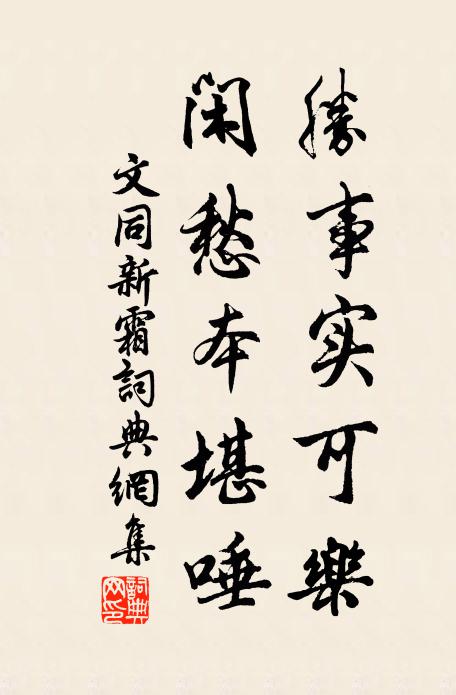 勝事实可樂
闲愁本堪唾
文同新霜詞典網集
詞典网印